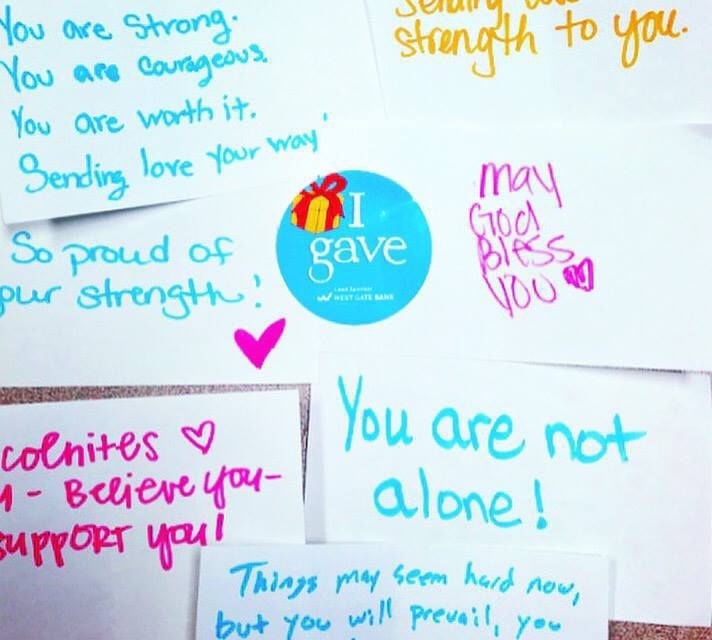 You are Strong.
You are Courageous.
You are worth it.
Sending love your way!
Sending
strength to you.
I
gave
Lead Sponsor
WEST GATE BANK
May
God
Bless
You
So proud of
our strength!
colnites
- Believe you-
support you!
You are not
alone!
Things may seem hard now,
but you will prevail, you